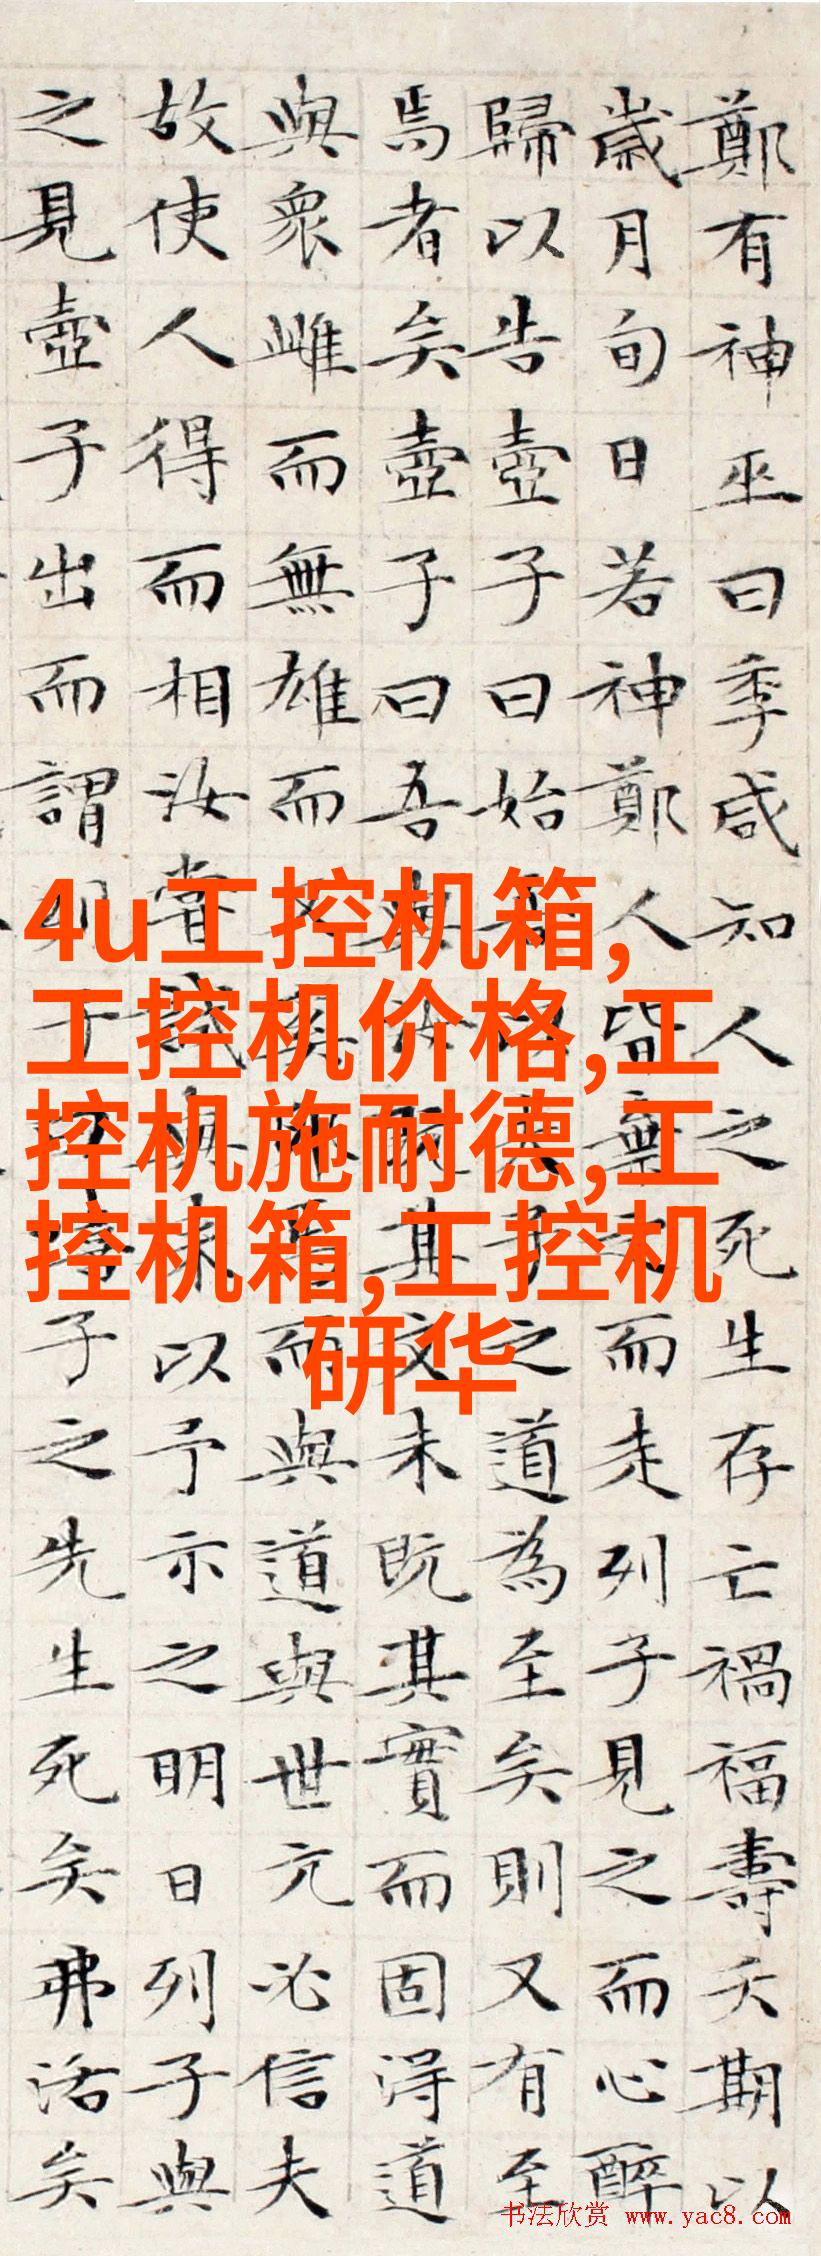 鄭有神巫曰季咸知人之死生存亡禍福壽夭期以
歲月旬日若神鄭人皆棄之而走列子見之而心醉
歸以告壺子曰始吾以夫子之道為至矣則又有至
焉者矣壺子曰吾與汝既其文未既其實而固得道
與衆雌而無雄而又奚卵焉而與道與世亢必信夫
故使人得而相汝嘗試與來以予示之明日列子與
之見壺子出而謂列子曰嘻子之先生死矣弗活矣
4u工控机箱,
工控机价格,工
控机施耐德,工
控机箱,工控机
研华
书法欣赏 www.yac8.com